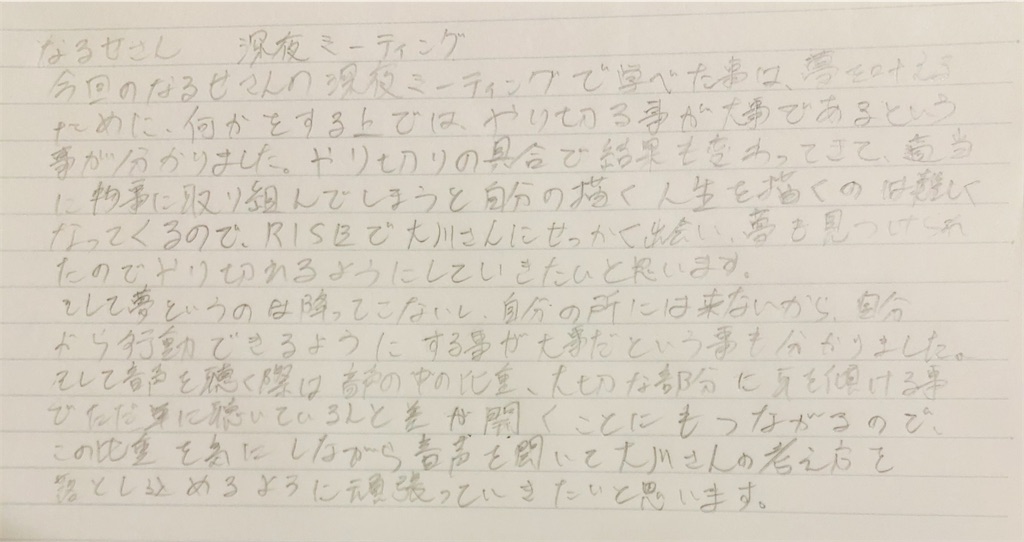 なるせさん 深夜ミーティング
今回のなるせさんの深夜ミーティングで学べた事は、夢を叶える
ために、何かをする上では、やり切る事が大事であるという
事が分かりました。やり切りの具合で結果も変わってきて、適当
に物事に取り組んでしまうと自分の描く人生を描くのは難しく
なってくるので、RISEで大川さんにせっかく出会い、夢も見つけられ
たのでやり切れるようにしていきたいと思います。
そして夢というのは降ってこないし、自分の所には来ないから、自分
から行動できるようにする事が大事だという事も分かりました。
そして音声を聴く際は音声の中の比重、大切な部分に耳を傾ける事
でただ単に聴いている人と差が開くことにもつながるので、
この比重を気にしながら音声を聞いて大川さんの考え方を
落とし込めるように頑張っていきたいと思います。